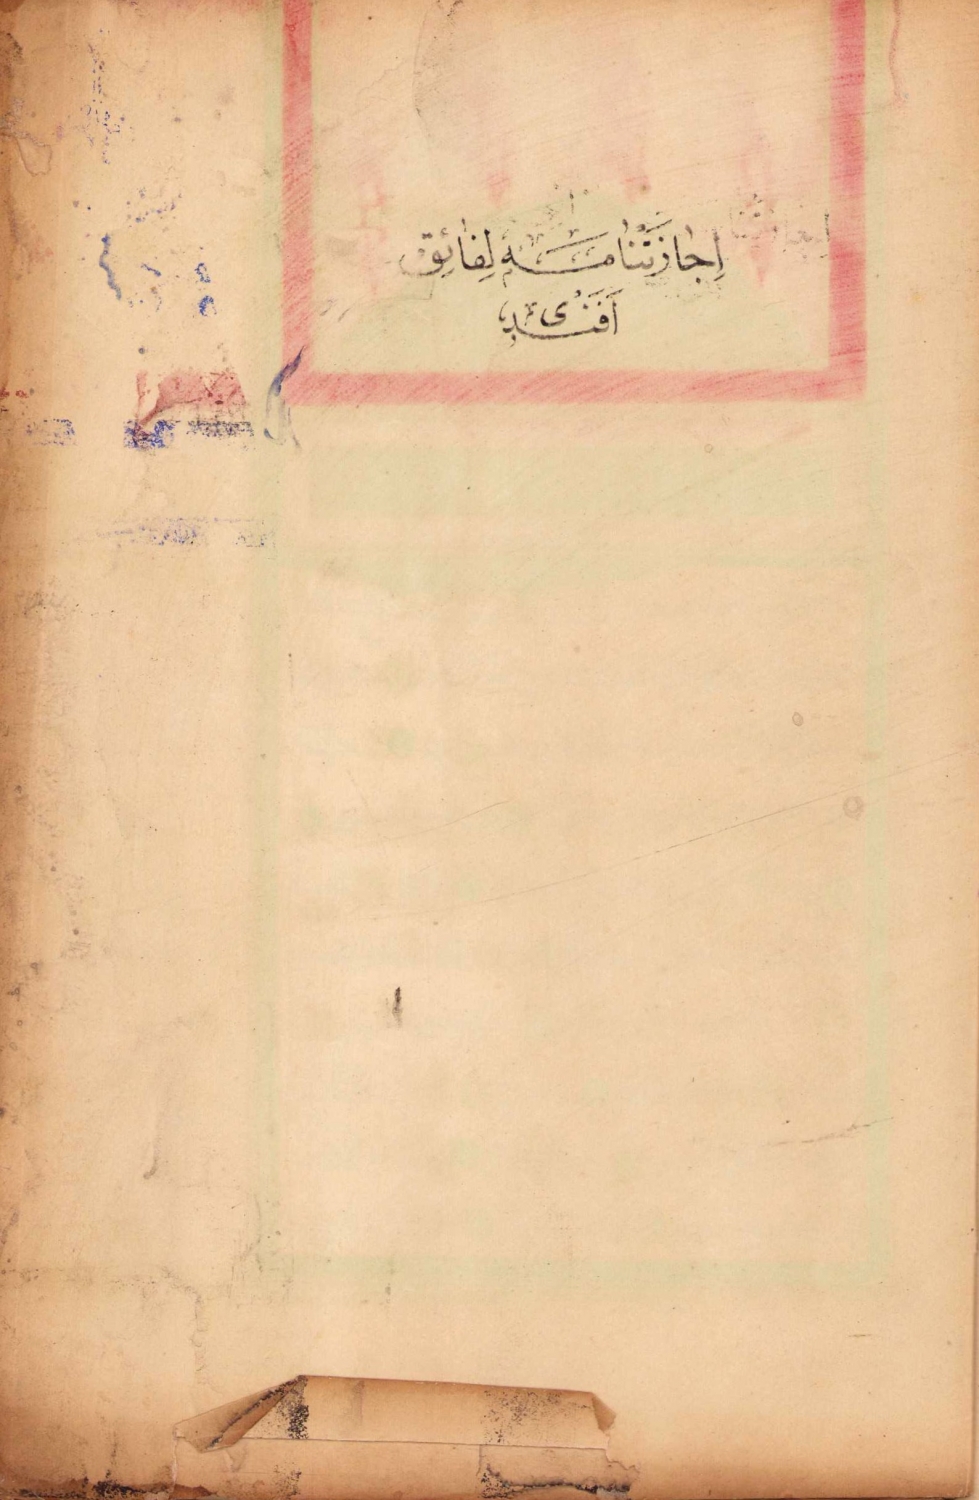 اِجازَتْنامَه لِفائِق
اَفَنْدِى